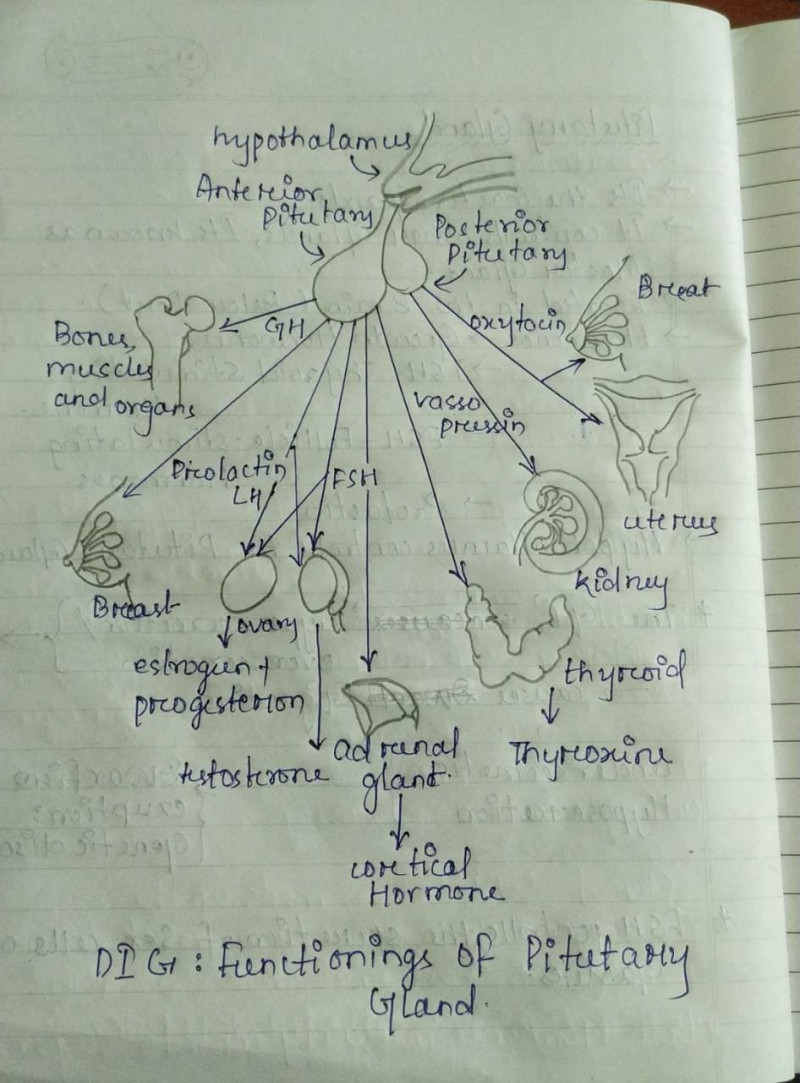 hypothalamus
Anterior
Pitutary
Posterior
Pitutary
Breat
oxytocin
GH
Bones,
muscles
and organs
vasso
pressin
Prolactin
LH
FSH
uterus
kidney
Breast
ovary
estrogen +
progesterion
thyroid
testosterone
adrenal
gland.
Thyroxine
cortical
Hormone
DIG : Functionings of Pitutary
Gland.